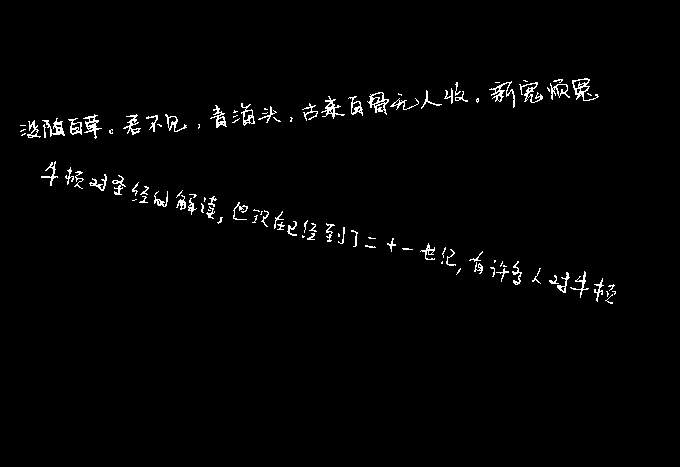 没随百草。君不见,青海头,古来白骨无人收。新鬼烦冤
牛顿对圣经的解读,但现在已经到了二十一世纪,有许多人对牛顿